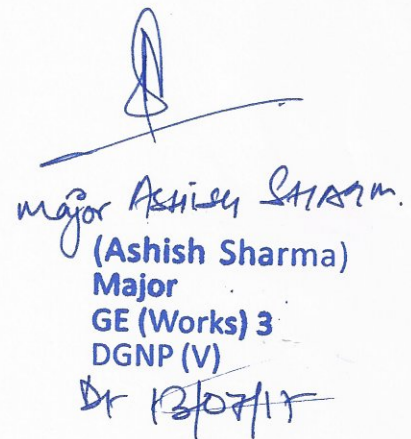 Major Ashish Sharm.
(Ashish Sharma)
Major
GE (Works) 3
DGNP (V)
Dt 13/07/17